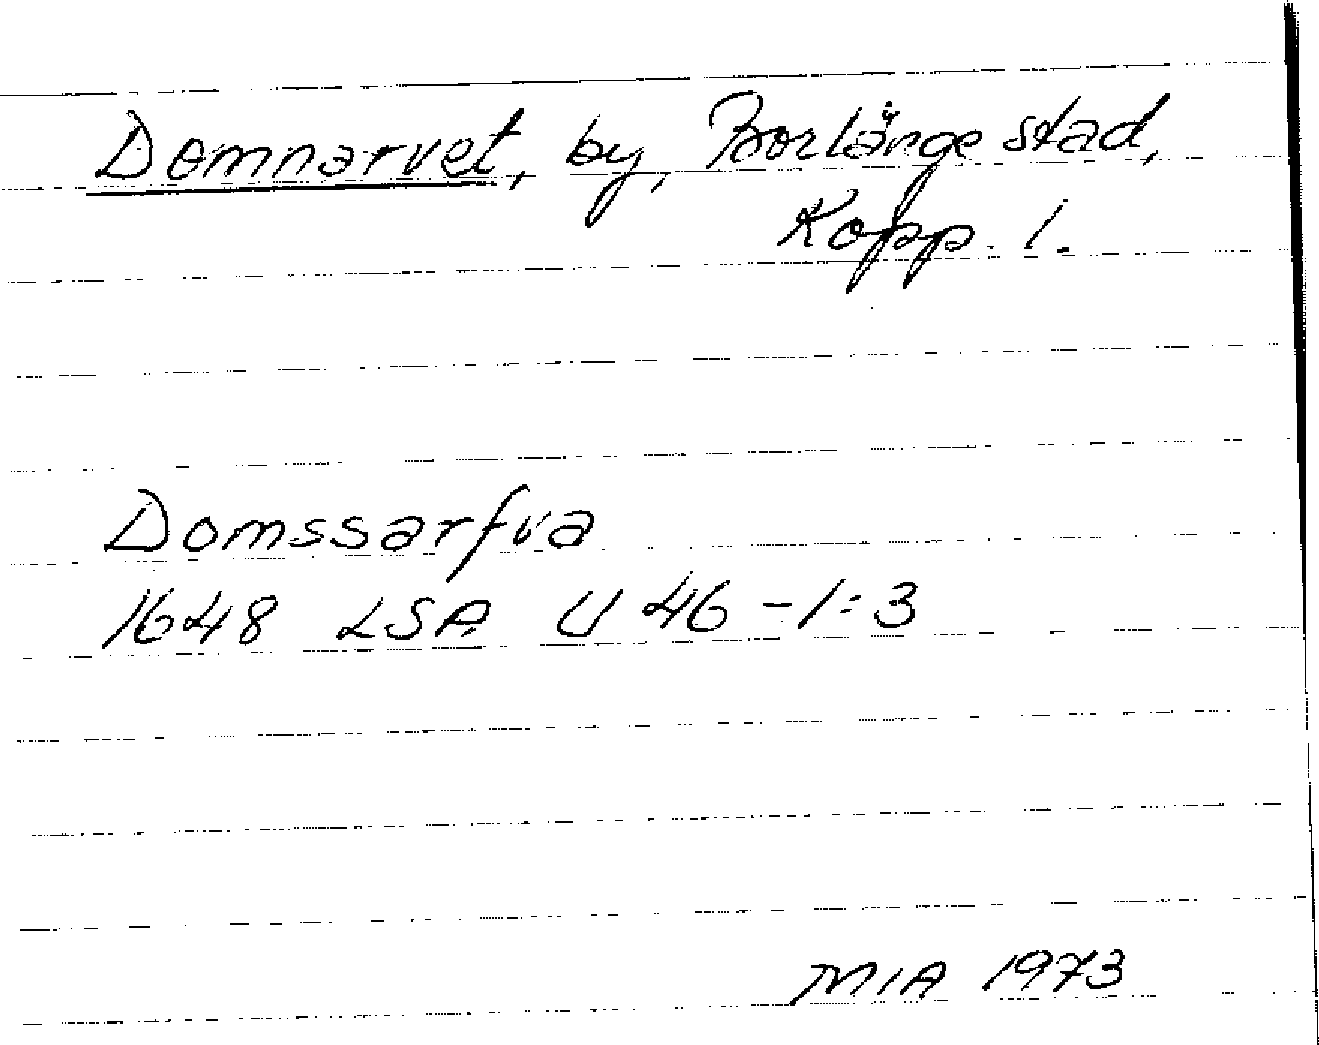 Domnarvet, by, Borlänge stad,
Kopp. l.
Domssarfva
1648 LSA U 46-1:3
MIA 1973